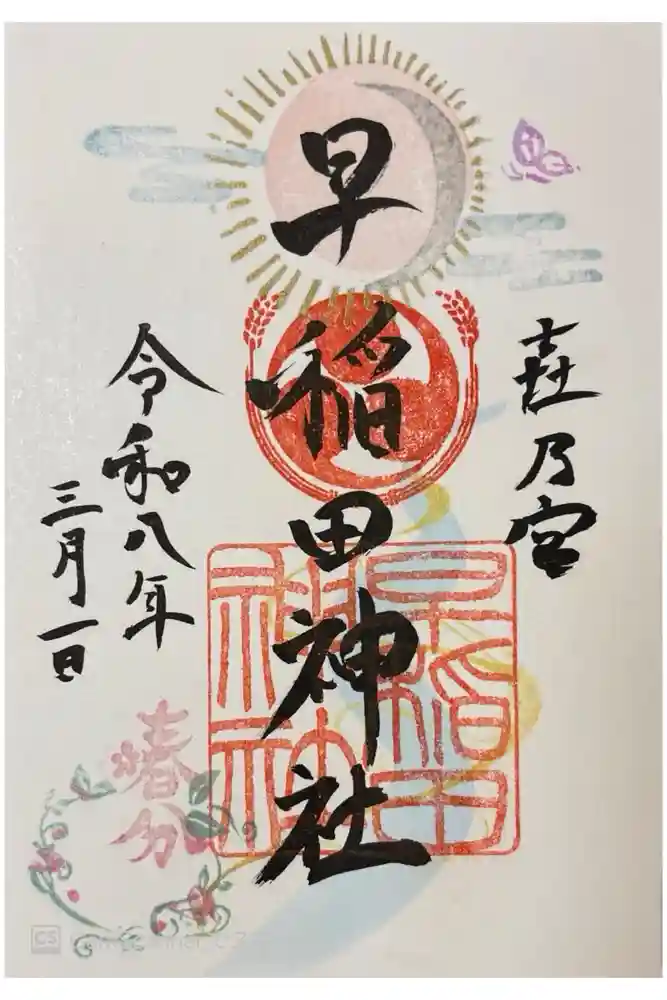 㐂乃宮
早稲田神社
早稲田
神社
令和八年
三月一日
春分
CS